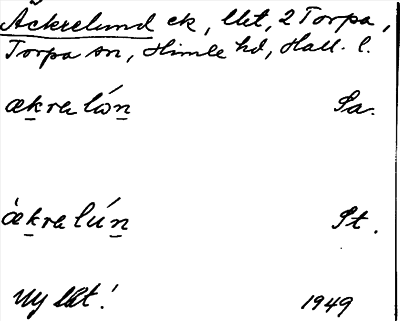 Äckrelund ek, llet, 2 Torpa,
Torpa sn, Himle hd, Hall. l.
ækra lón Sa.
ækra lún St.
Ny llt! 1949